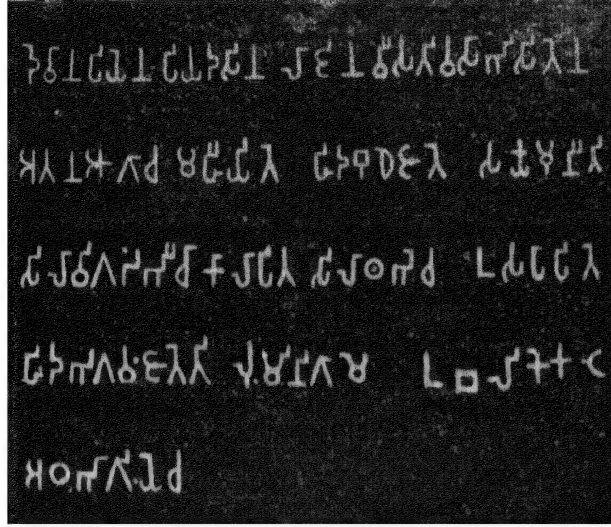 𑀤𑁂𑀯𑀸𑀦𑀧𑀺𑀬𑁂𑀦 𑀧𑀺𑀬𑀤𑀲𑀺𑀦 𑀮𑀸𑀚𑀺𑀦 𑀯𑀻𑀲𑀢𑀺𑀯𑀲𑀸𑀪𑀺𑀲𑀺𑀢𑁂𑀦
𑀅𑀢𑀦𑀆𑀕𑀸𑀘 𑀫𑀳𑀻𑀬𑀺𑀢𑁂 𑀳𑀺𑀤𑀩𑀼𑀥𑁂𑀚𑀸𑀢𑁂 𑀲𑀓𑁆𑀬𑀫𑀼𑀦𑀻𑀢𑀺
𑀲𑀺𑀮𑀸𑀯𑀺𑀕𑀥𑀪𑀻𑀘𑀸𑀓𑀸𑀮𑀸𑀧𑀺𑀢 𑀲𑀺𑀮𑀸𑀣𑀪𑁂𑀘 𑀉𑀲𑀧𑀸𑀧𑀺𑀢𑁂
𑀳𑀺𑀤𑀪𑀕𑀯𑀁𑀚𑀸𑀢𑁂𑀢𑀺 𑀮𑀼𑀁𑀫𑀺𑀦𑀺𑀕𑀸𑀫𑁂 𑀉𑀩𑀮𑀺𑀓𑁂𑀓𑀝𑁂
𑀅𑀞𑀪𑀸𑀕𑀺𑀬𑁂𑀘